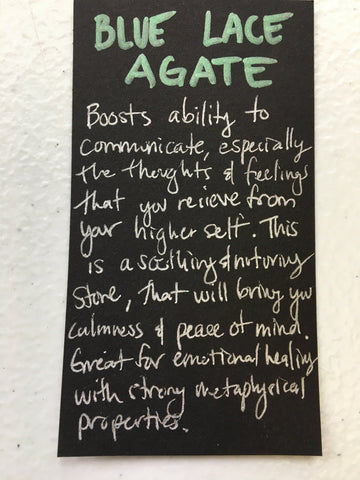 BLUE LACE
AGATE
Boosts ability to
communicate, especially
the thoughts & feelings
that you recieve from
your higher self. This
is a soothing & nurturing
stone, that will bring you
calmness & peace of mind.
Great for emotional healing
with strong metaphysical
properties.